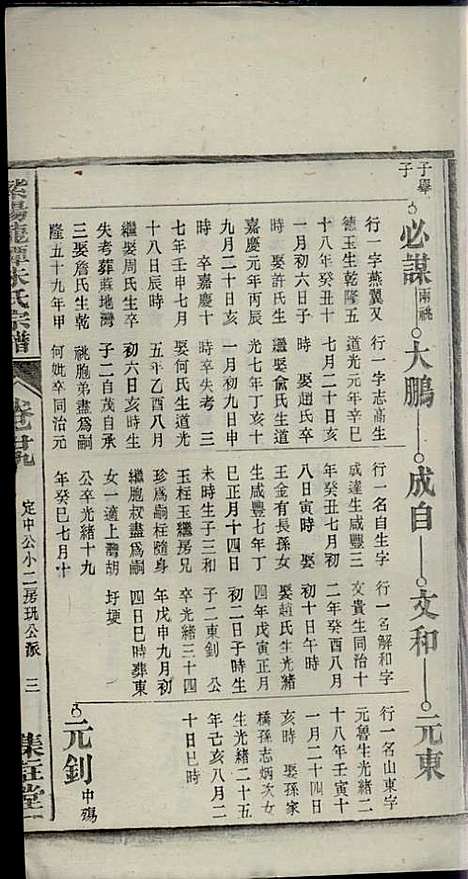 子舉
子
必謀兩祧
行一字燕翼又
德玉生乾隆五
十八年癸丑十
一月初六日子
時 娶許氏生
嘉慶元年丙辰
九月二十日亥
時 卒嘉慶十
七年壬申七月
十八日辰時
繼娶周氏生卒
失考葬蔴地灣
三娶詹氏生乾
隆五十九年甲
大鵬
行一字志高生
道光元年辛巳
七月二十日亥
時 娶趙氏卒
繼娶俞氏生道
光七年丁亥十
月初九日申
時卒失考 三
娶何氏生道光
五年乙酉八月
初六日亥時生
子二自茂自承
祧胞弟盡為嗣
何妣卒同治元
成自
行一名自生字
成達生咸豐三
年癸丑七月初
八日寅時 娶
王金有長孫女
生咸豐七年丁
巳正月十四日
未時生子三和
玉枉玉繼房兄
珍為嗣枉隨身
繼胞叔盡為嗣
女一適上灣胡
公卒光緒十九
年癸巳七月十
文和
行一名解和字
文貴生同治十
二年癸酉八月
初十日午時
娶趙氏生光緒
四年戊寅正月
初二日子時生
子二東釗 公
卒光緒三十四
年戊申九月初
四日巳時葬東
圩埂
元東
行一名山東字
元魯生光緒二
十八年壬寅十
一月二十四日
亥時 娶孫家
橋孫志炳次女
生光緒二十五
年己亥八月二
十日巳時
元釗中殤
紫陽龍潭朱氏宗譜
卷廿九
定中公小二房玩公派 三
集註堂